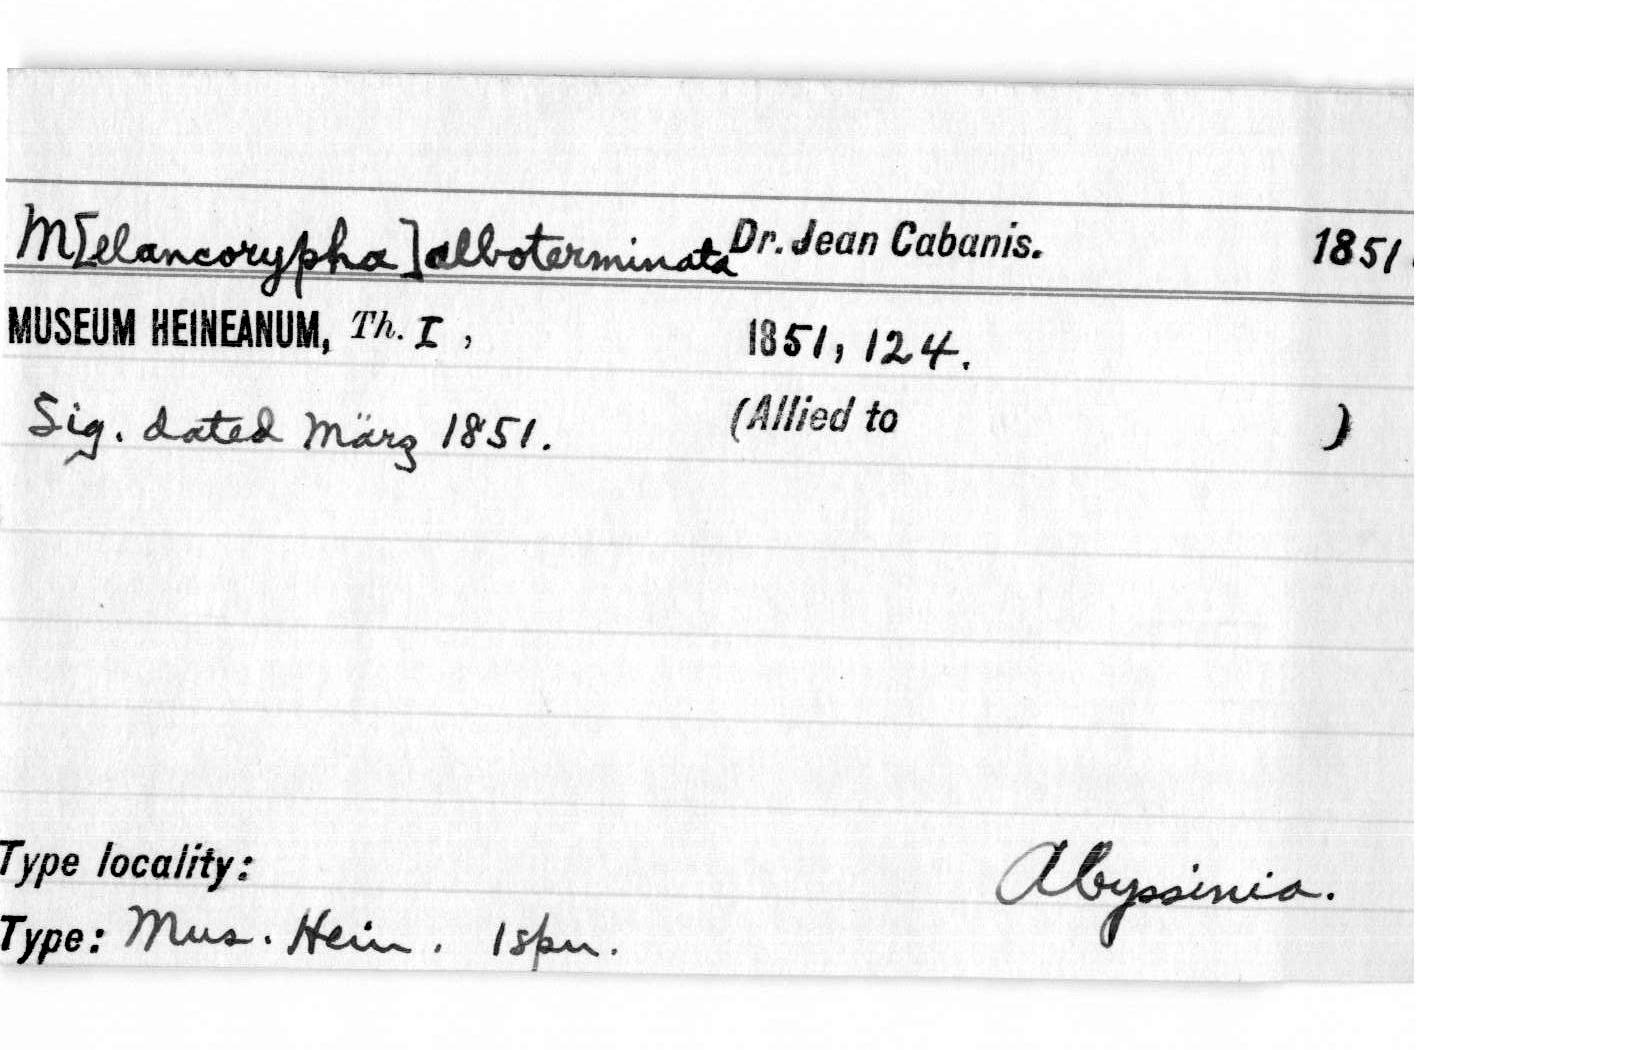 M[elancorypha] alboterminata Dr. Jean Cabanis. 1851.
MUSEUM HEINEANUM, Th. I, 1851, 124.
Sig. dated März 1851. (Allied to )
Type locality: Abyssinia.
Type: Mus. Hein. 1 spn.